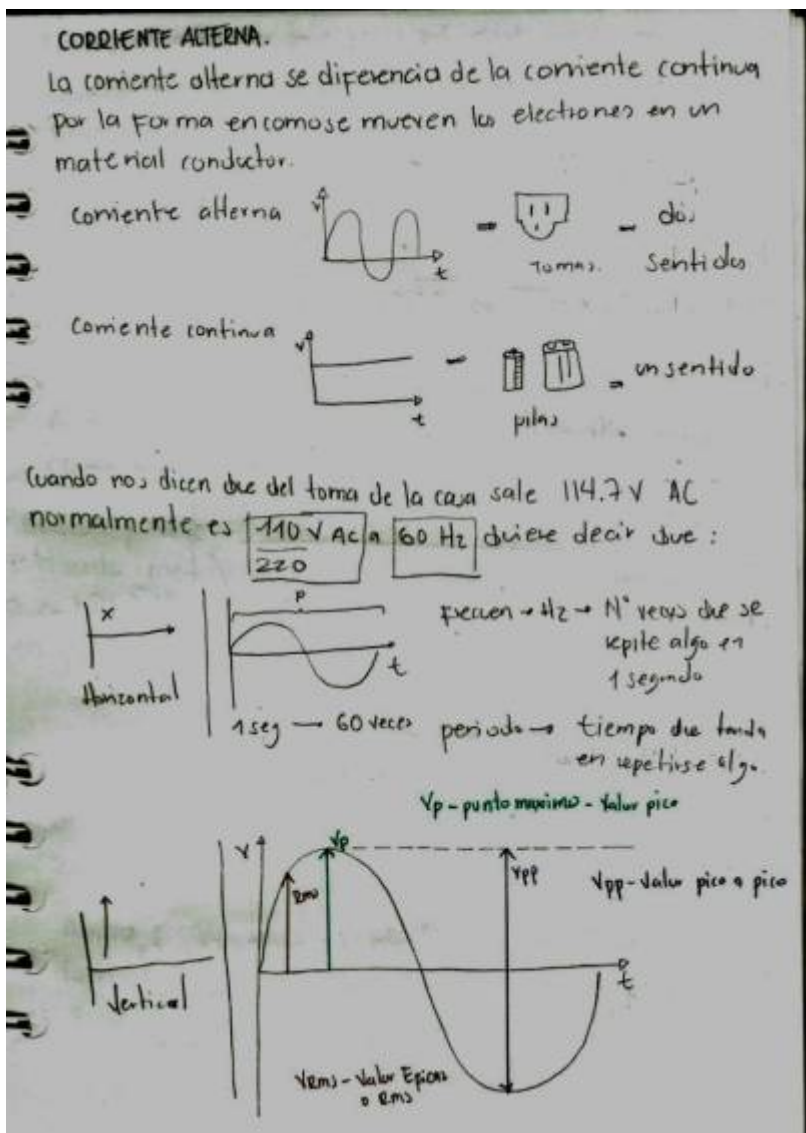 CORRIENTE ALTERNA.
La corriente alterna se diferencia de la corriente continua
por la forma en como se mueven los electrones en un
material conductor.
corriente alterna V t = Tomas. - dos sentidos
Corriente continua V t - pilas = un sentido
Cuando nos dicen que del toma de la casa sale 114.7 V AC
normalmente es 110 V AC a 60 Hz quiere decir que :
220
X
Horizontal
P
t
1 seg — 60 veces
frecuen → Hz → N° veces que se
repite algo en
1 segundo
periodo → tiempo que tarda
en repetirse algo.
Vp - punto maximo - Valor pico
V
Vp
Rms
Vpp
Vpp - Valor pico a pico
t
Vertical
VRms - Valor Eficaz
o Rms